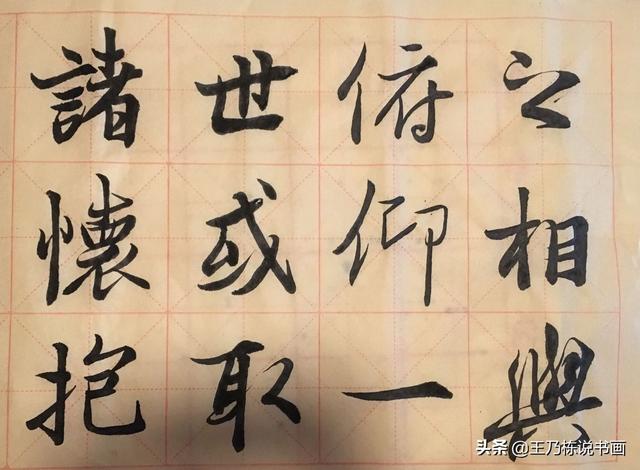 之相與
俯仰一
世或取
諸懷抱
头条 @王乃栋说书画